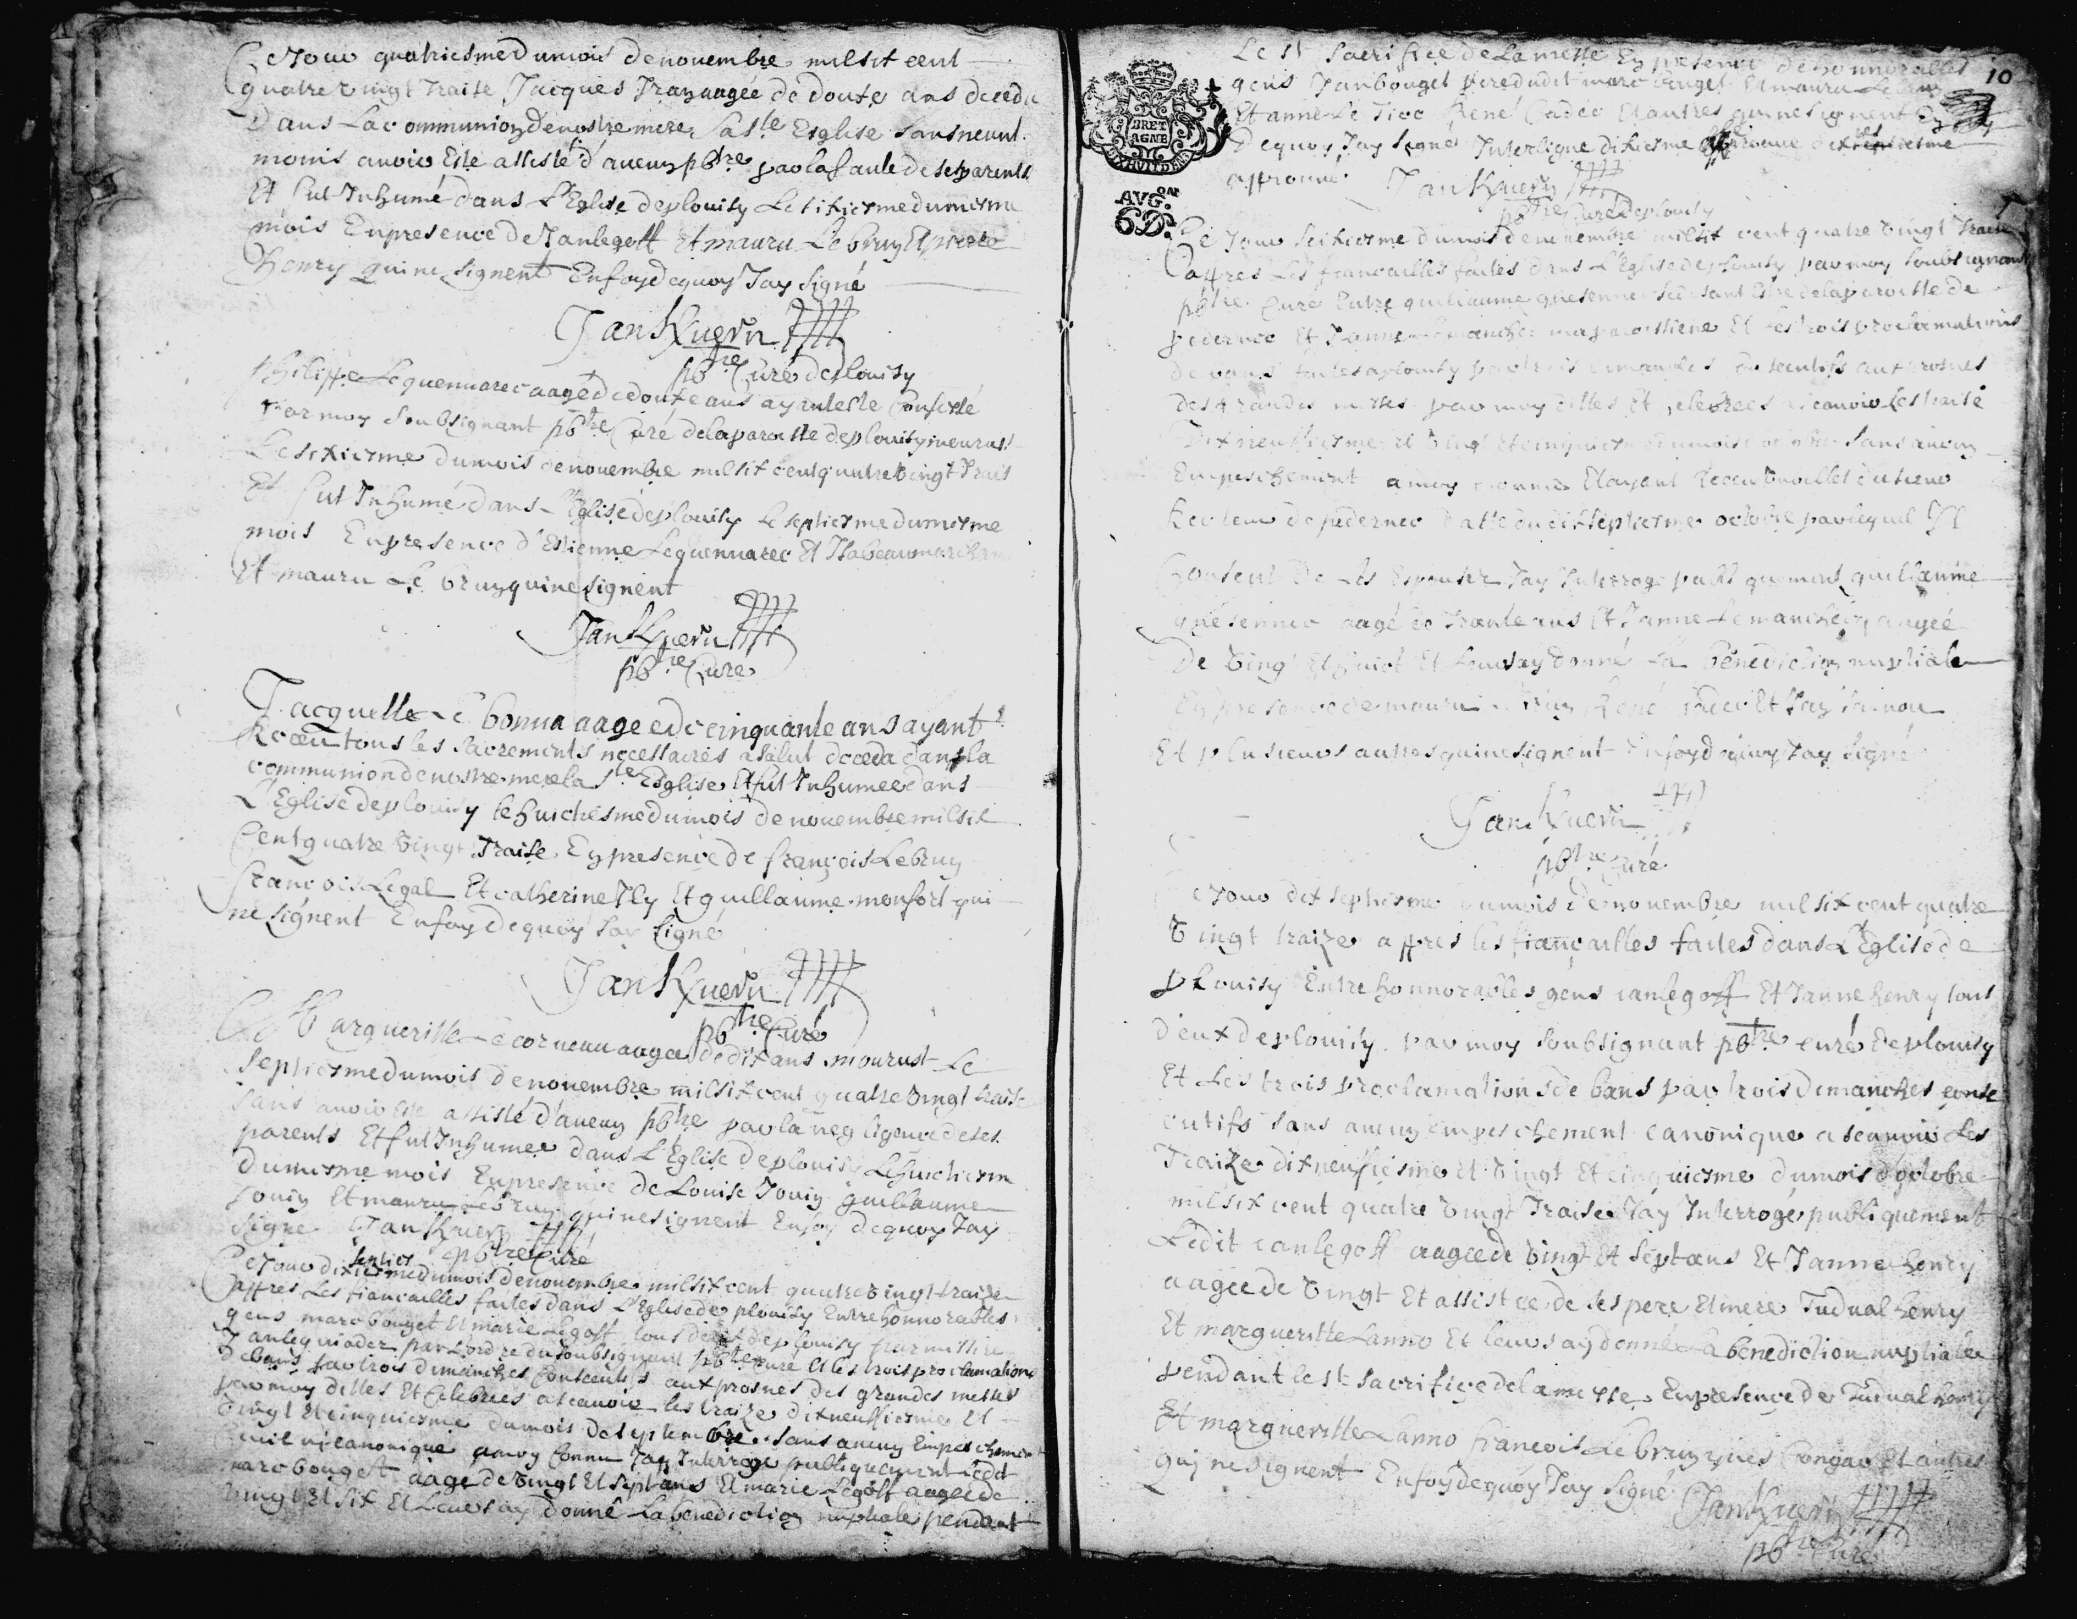 Ce jour quatriesme du mois de novembre mil six cent
quatre vingt traise Jacques aagée de douze ans deceda
Dans la communion de nostre mere la Ste Esglise sans neant
moins avoir esté assisté d'aucun pbtre par la faute de ses parents
Et fut Inhumé dans L'Eglise deplouisy Le sixiesme du mesme
mois En presence de Jan legoff Et mauru Le bruy Et pierre
Henry qui ne signent En foy de quoy Jay signé
Jan Kuern
pbtre Curé deplouisy
Philippe Le quenuarec aagé de douze ans ayant esté Confessé
Par moy soubsignant pbtre Curé de la paroisse deplouisy mourust
Le sixiesme du mois de novembre mil six cent quatre vingt trais
Et fut Inhumé dans l'Eglise deplouisy Le septiesme du mesme
mois En presence d'Estienne Le quenuarec Et Isabeau
Et mauru Le bruy qui ne signent
Jan Kuern
pbtre Curé
Jacquette Le bonna aagee de cinquante ans ayant
Receu tous les sacrements necessaires a salut deceda dans la
communion de nostre mere la Ste Esglise Et fut Inhumee dans
L'Eglise deplouisy le huictiesme du mois de novembre mil six
Cent quatre vingt Traise En presence de françois Le bruy
françois Legal Et catherine Ily Et guillaume monfort qui
ne signent En foy de quoy Jay signé
Jan Kuern
pbtre Curé
Marguerite Le cornenu aagee de dix ans mourust Le
septiesme du mois de novembre mil six cent quatre vingt traise
sans avoir esté assisté d'aucun pbtre par la negligence de ses
parents Et fut Inhumee dans L'Eglise deplouisy Le huictiesm
du mesme mois En presence de Louise Jouin guillaume
Jouin Et mauru Le bruy qui ne signent En foy de quoy Jay
signe Jan Kuern
pbtre Curé
septies
Ce jour dixiesme du mois de novembre mil six cent quatre vingt traize
apres Les fiançailles faites dans L'Eglise de plouisy Entre honnorables
gens marc bouget Et marie Legoff tous deux deplouisy par missire
Jan lequiader par L'ordre du soubsignant pbtre curé Et les trois proclamations
de bans par trois dimanches Consecutifs aux prosnes des grandes messes
par moy dittes Et Celebrees ascavoir les traize dixneuffiesme Et
vingt Et cinquiesme du mois de septembre sans aucun Empeschement
civil ni canonique a moy connu Jay Interrogé publiquement ledit
marc bouget aagé de vingt Et sept ans Et marie Legoff aagee de
vingt Et six Et Leurs ay donné La benediction nuptiale pendant
10
Le st sacrifice de La messe En presence de honnorables
gens Jan bouget pere dudit marc bouget Et mauru Le bruy
Et anne Le Tioc René Cadec Et autres qui ne signent
De quoy Jay signé Interligne dixiesme
approuvé Jan Kuern
pbtre Curé deplouisy
BRET
AGNE
AVG.on
6Ds
Ce jour seixiesme du mois de novembre mil six cent quatre vingt traise
apres Les fiancailles faites dans L'Eglise deplouisy par moy soubsignant
pbtre Curé Entre guillaume quesennec se disant Estre de la paroisse de
pedernec Et Janne Le manchec ma paroissiene Et Les trois proclamations
de bans faites a plouisy par trois dimanches consecutifs aux prosnes
des grandes messes par moy dittes Et celebrees ascavoir Les traise
Dixneuffiesme et vingt Et cinquiesme du mois d'octobre sans aucun
Empeschement a moy connu Et ayant Receu
Recteur de pedernec datté du dixseptiesme octobre par lequel Il
Consent de Les Espouser Jay Interrogé publiquement guillaume
quesennec aagé de trante ans Et Janne Le manchec aagée
De vingt Et huict Et Leurs ay donné La benediction nuptiale
En presence de mauru Le bruy René Cadec Et
Et plusieurs autres qui ne signent En foy de quoy Jay Signé
Jan Kuern
pbtre Curé
Ce jour dix septiesme du mois de novembre mil six cent quatre
vingt traize appres les fiançailles faites dans L'Eglise de
plouisy Entre honnorables gens Jan legoff Et Janne henry tout
deux deplouisy par moy soubsignant pbtre curé deplouisy
Et Les trois proclamations de bans par trois dimanches conse
cutifs sans aucun empeschement canonique ascavoir Les
Traize dixneuffiesme et vingt Et cinquiesme du mois d'octobre
mil six cent quatre vingt Traise Jay Interrogé publiquement
Ledit Jan legoff aagee de vingt Et sept ans Et Janne henry
aagee de vingt Et assistee de ses pere Et mere Tudual henry
Et margueritte Lanno Et leurs ay donné La benediction nuptiale
pendant le st sacrifice de la messe En presence de Tudual henry
Et margueritte Lanno francois Le bruy yves Congar Et autres
qui ne signent En foy de quoy Jay Signé
Jan Kuern
pbtre Curé